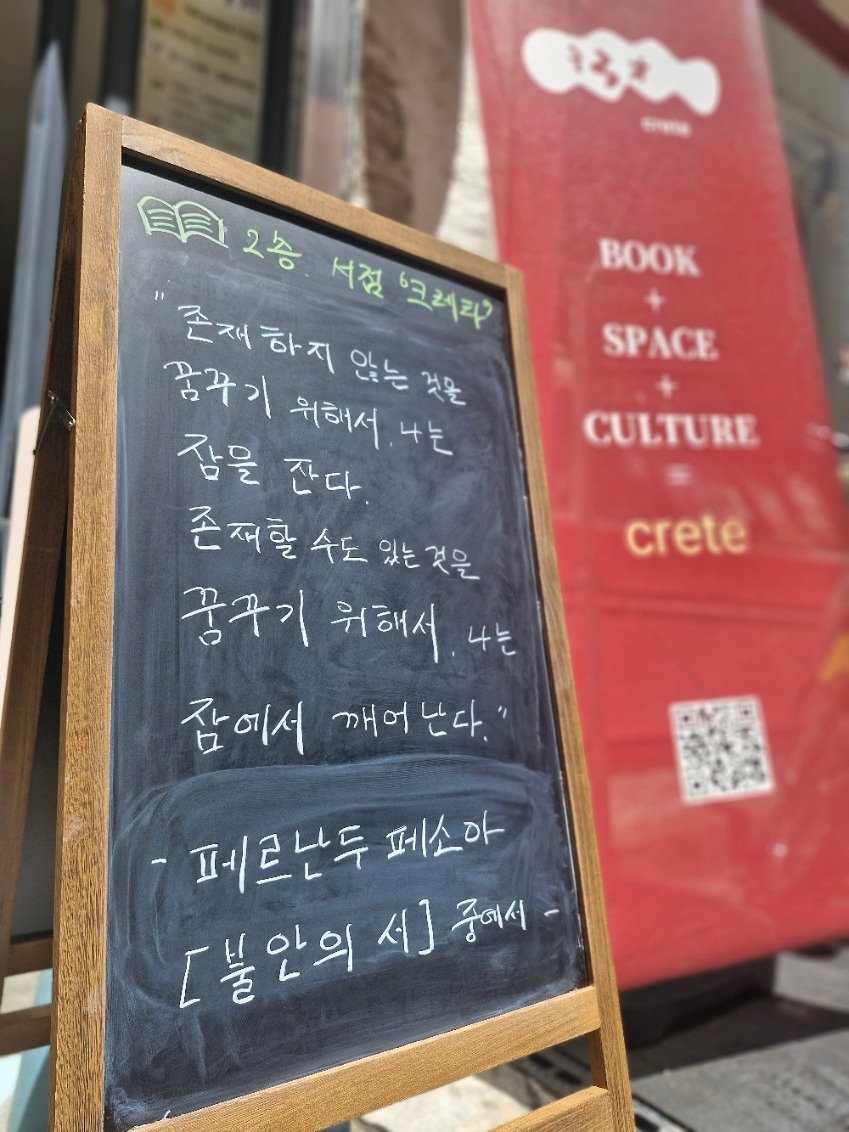 2층. 서점 '크레타'
" 존재하지 않는 것을
꿈꾸기 위해서, 나는
잠을 잔다.
존재할 수도 있는 것을
꿈꾸기 위해서, 나는
잠에서 깨어난다."
- 페르난두 페소아
[불안의 서] 중에서 -
crete
BOOK
+
SPACE
+
CULTURE
=
crete